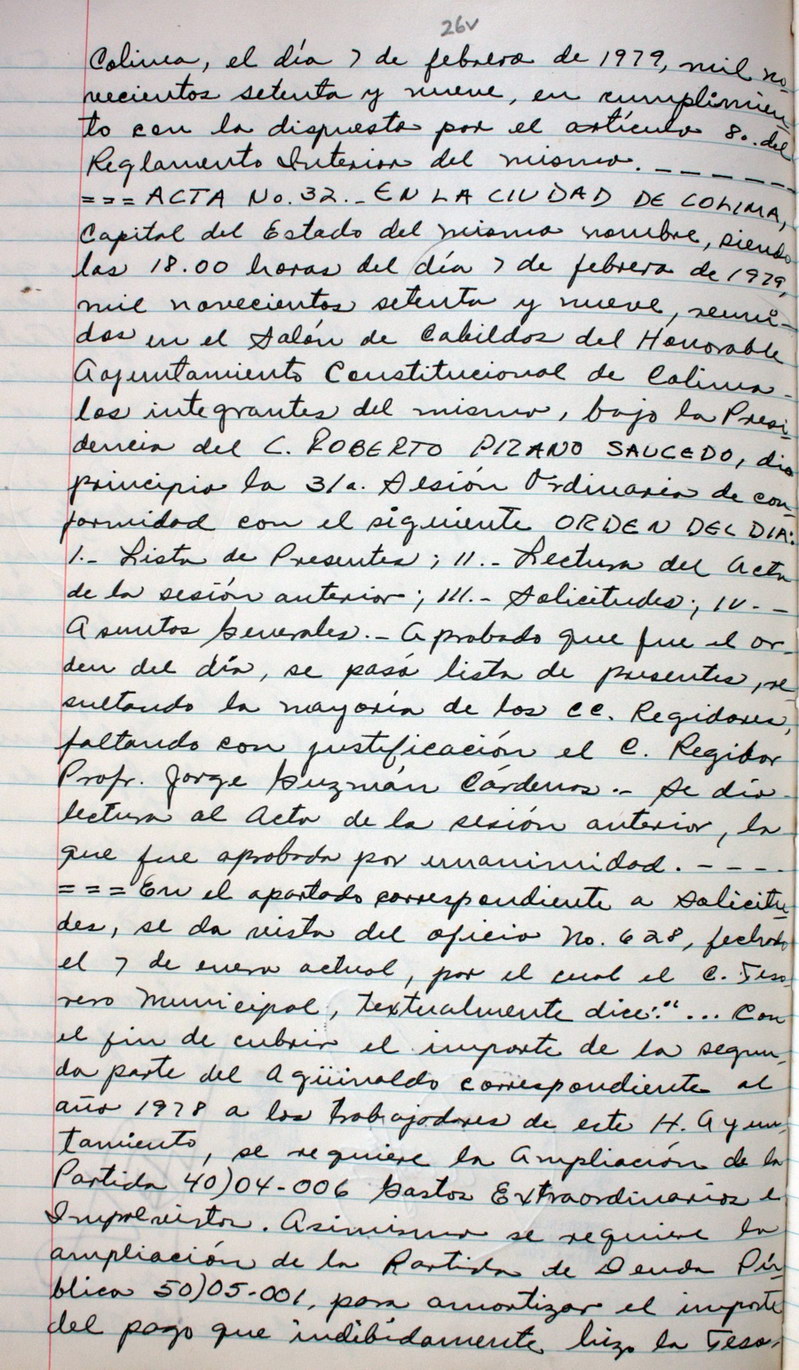 26v
Colima, el día 7 de febrero de 1979, mil no-
vecientos setenta y nueve, en cumplimien
to con lo dispuesto por el artículo 80. del
Reglamento Interior del mismo. _ _ _ _ _ _
=== ACTA No. 32._ EN LA CIUDAD DE COLIMA,
Capital del Estado del mismo nombre, siendo
las 18.00 horas del día 7 de febrero de 1979,
mil novecientos setenta y nueve, reuni-
dos en el Salón de Cabildos del Honorable
Ayuntamiento Constitucional de Colima-
los integrantes del mismo, bajo la Presi
dencia del C. ROBERTO PIZANO SAUCEDO, dio
principio la 31a. Sesión Ordinaria de con
formidad con el siguiente ORDEN DEL DIA:
I.- Lista de Presentes; II.- Lectura del Acta
de la sesión anterior; III.- Solicitudes; IV.--
Asuntos Generales.- Aprobado que fue el or-
den del día, se pasó lista de presentes, re
sultando la mayoría de los CC. Regidores,
faltando con justificación el C. Regidor
Profr. Jorge Guzmán Cárdenas.- Se dio
lectura al Acta de la sesión anterior, la
que fue aprobada por unanimidad. - - - -
=== En el apartado correspondiente a Solicitu
des, se da vista del oficio No. 628, fechado
el 7 de enero actual, por el cual el C. Teso
rero Municipal, textualmente dice:"... Con
el fin de cubrir el importe de la segun-
da parte del Agüinaldo correspondiente al
año 1978 a los trabajadores de este H. Ayun-
tamiento, se requiere la Ampliación de la
Partida 40)04-006 Gastos Extraordinarios e
Imprevistos. Asimismo se requiere la
ampliación de la Partida de Deuda Pú-
blica 50)05-001, para amortizar el importe
del pago que indibidamente hizo la Teso-